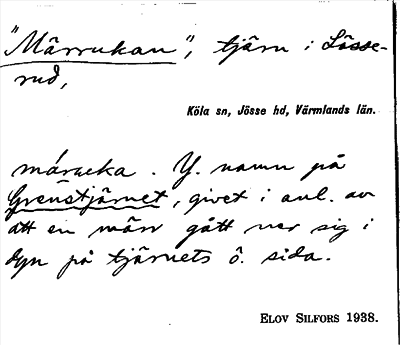 "Märrukan", tjärn i Lösse-
rud,
Köla sn, Jösse hd, Värmlands län.
márucka. Y. namn på
Grenstjärnet, givet i anl. av
att en märr gått ner sig i
dyn på tjärnets ö. sida.
ELOV SILFORS 1938.